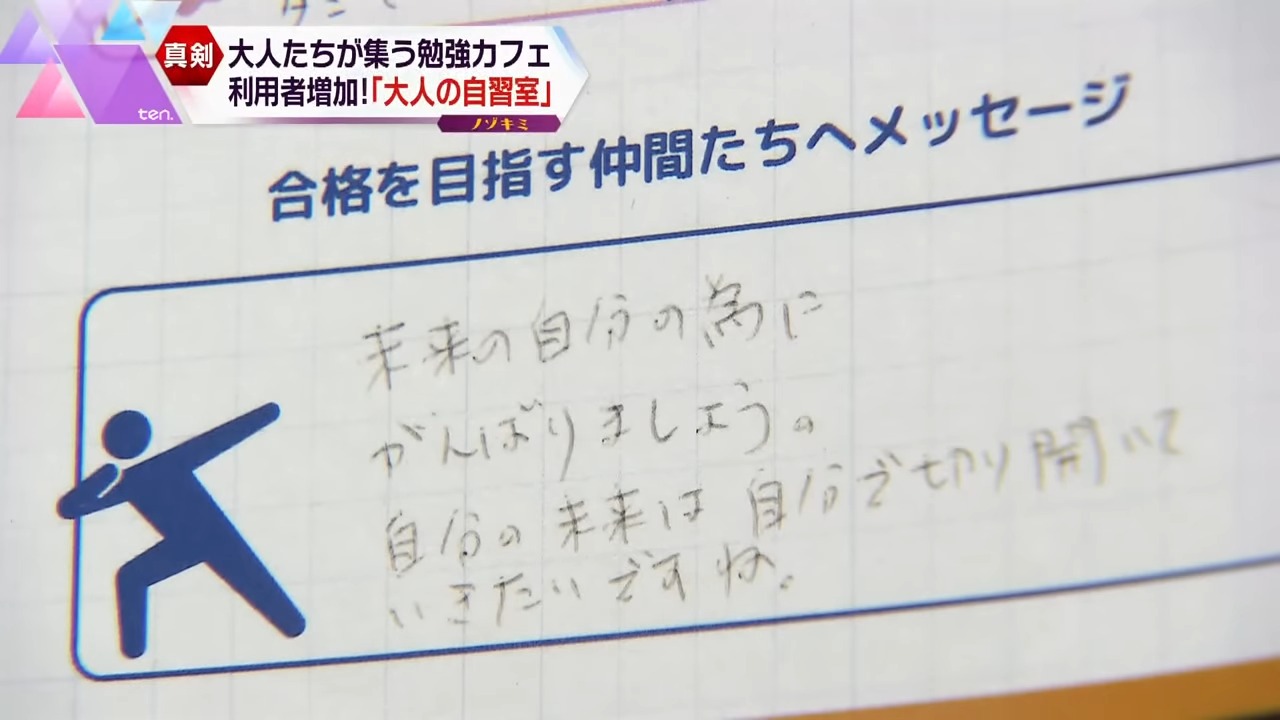 真剣
大人たちが集う勉強カフェ
利用者増加!「大人の自習室」
ten.
ノゾキミ
合格を目指す仲間たちへメッセージ
未来の自分の為に
がんばりましょう。
自分の未来は自分で切り開いて
いきたいですね。